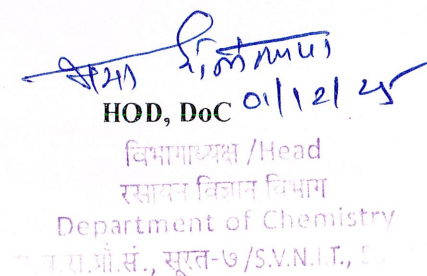 HOD, DoC 01/12/25
विभागाध्यक्ष /Head
रसायन विज्ञान विभाग
Department of Chemistry
रा.प्रौ.सं., सूरत-७ /S.V.N.I.T.,